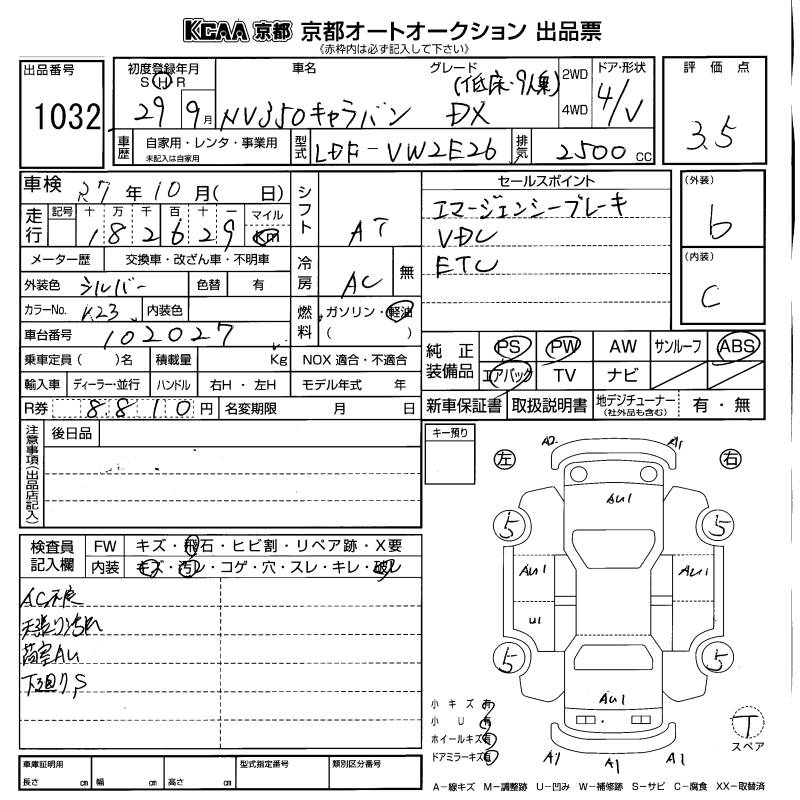 KCAA 京都 京都オートオークション 出品票
《赤枠内は必ず記入して下さい》
出品番号
1032
初度登録年月
S H R
29 9月
車名
NV350キャラバン
グレード
(低床・9人乗)
DX
2WD
4WD
ドア・形状
4/V
評価点
3.5
車歴
自家用・レンタ・事業用
未記入は自家用
型式
LDF-VW2E26
排気
2500cc
車検 R7年10月( 日)
走行
記号 十 万 千 百 十 一 マイル
182629 Km
メーター歴 交換車・改ざん車・不明車
外装色 シルバー 色替 有
カラーNo. K23 内装色
車台番号 102027
乗車定員( )名 積載量 Kg
輸入車 ディーラー・並行 ハンドル 右H・左H
R券 8810円 名変期限 月 日
シフト AT
冷房 AC 無
燃料 ガソリン・軽油
( )
NOX 適合・不適合
モデル年式 年
セールスポイント
エマージェンシーブレーキ
VDC
ETC
(外装)
b
(内装)
C
純正装備品
PS PW AW サンルーフ ABS
エアバック TV ナビ
新車保証書 取扱説明書 地デジチューナー 有・無
(社外品も含む)
注意事項(出品店記入)
後日品
キー預り
検査員記入欄
FW キズ・飛石・ヒビ割・リペア跡・X要
内装 キズ・汚れ・コゲ・穴・スレ・キレ・破れ
AC不良
天張り汚れ
荷室AU
下廻りS
左 右
A2 A1
AU1
5 5
AU1 AU1
U1
5 5
AU1
A1 A1 A1
小キズ有
小U有
ホイールキズ有
ドアミラーキズ有
T
スペア
車庫証明用
長さ cm 幅 cm 高さ cm
型式指定番号
類別区分番号
A-線キズ M-調整跡 U-凹み W-補修跡 S-サビ C-腐食 XX-取替済